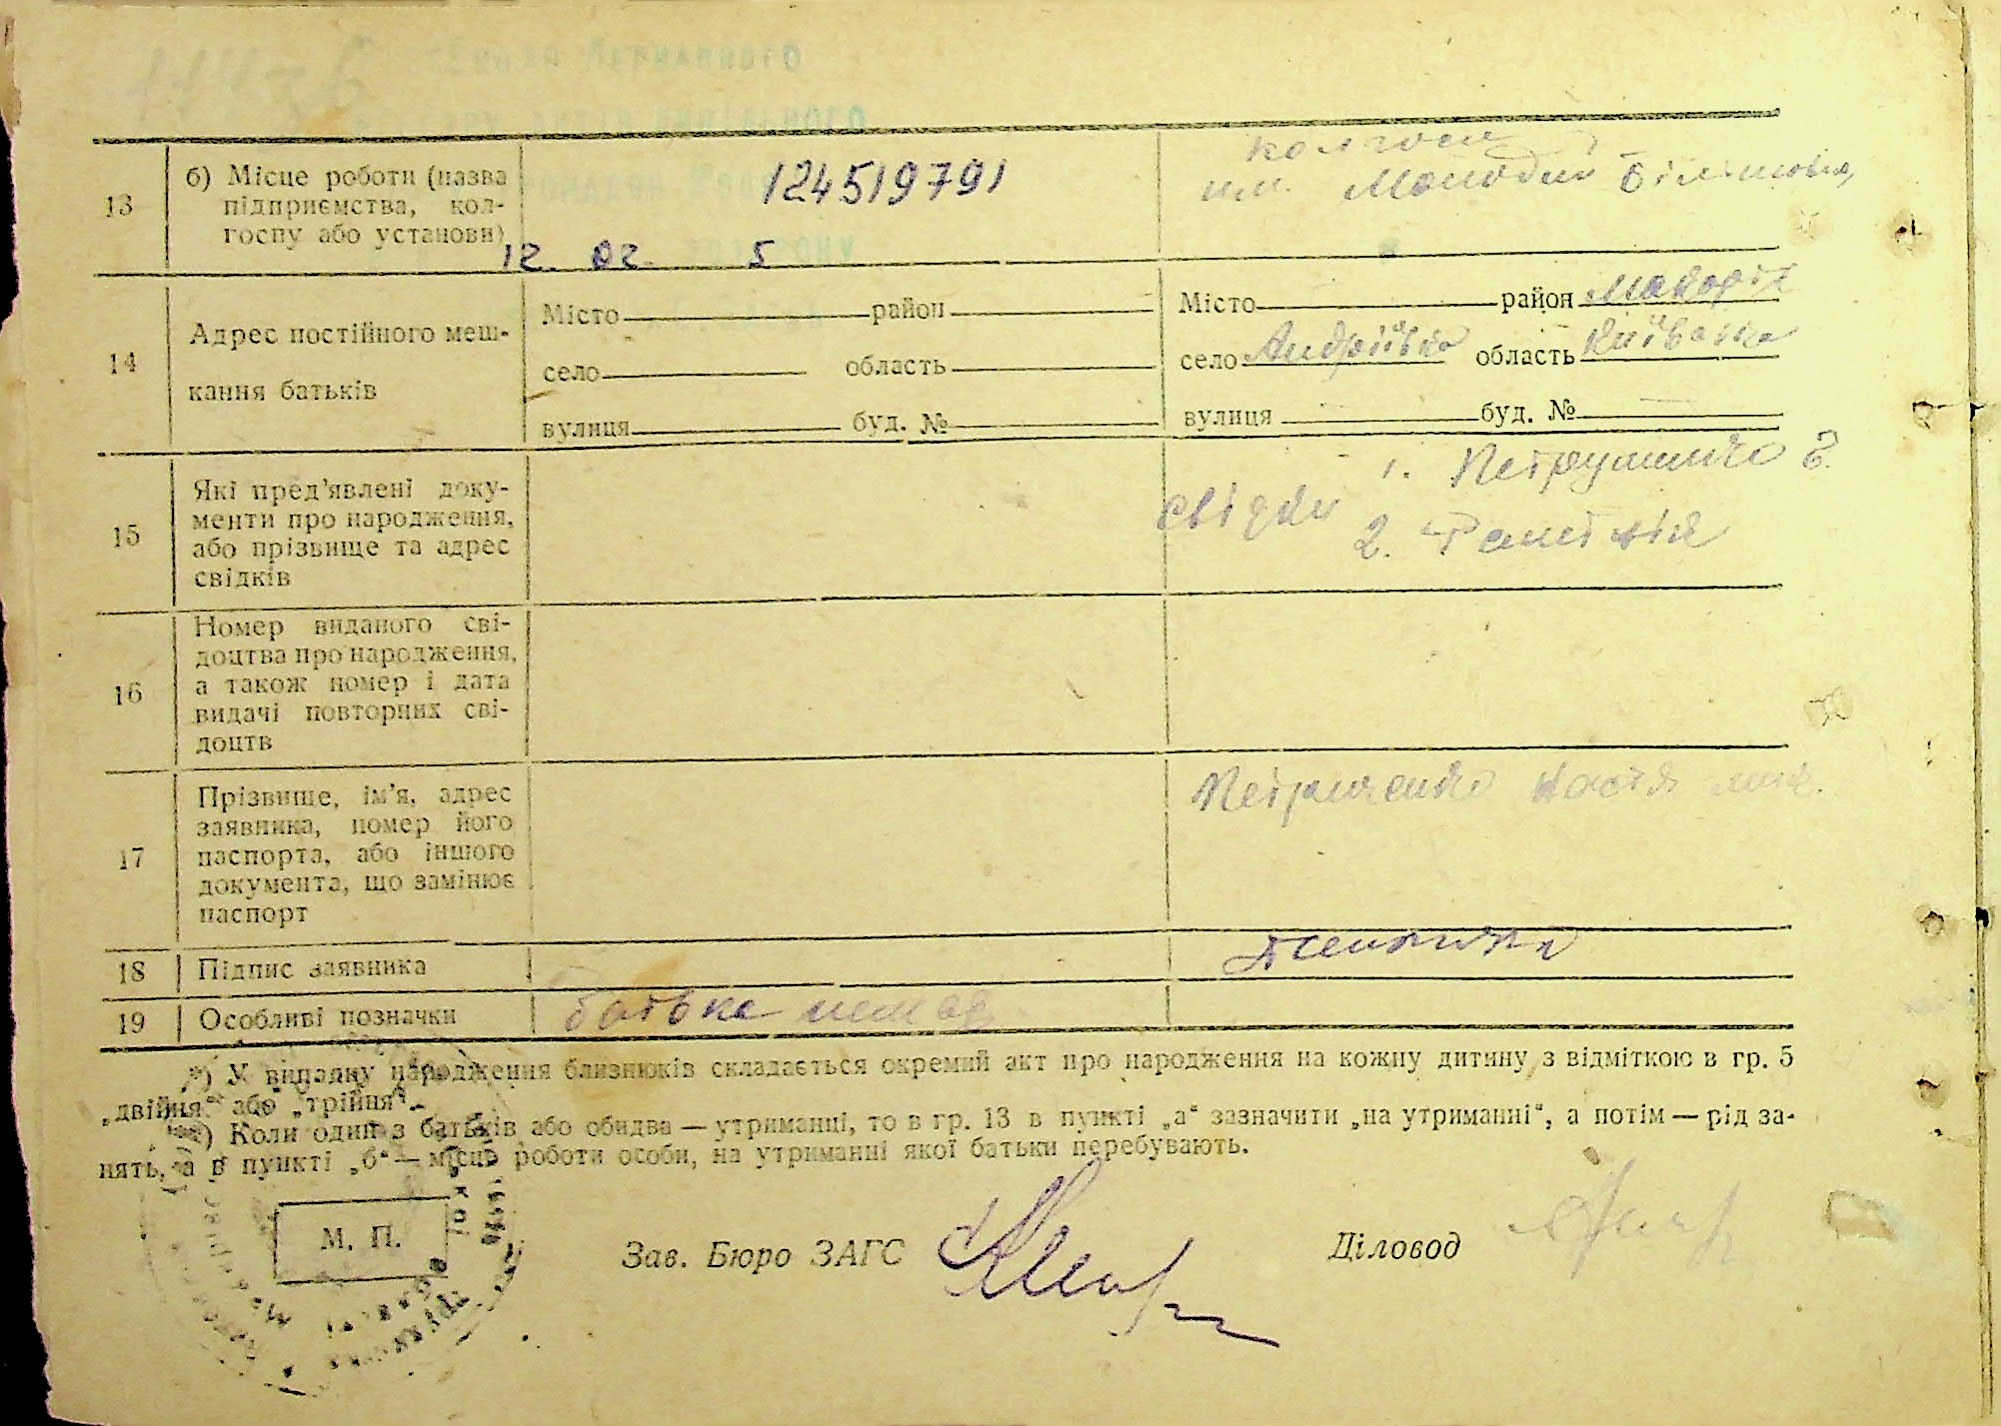 13
б) Місце роботи (назва
підприємства, кол-
госпу або установи)
124519791
12. 02. 5
колгосп
им. Молодий Більшовик
14
Адрес постійного меш-
кання батьків
Місто район
село область
вулиця буд. №
Місто район Макарів
село Андріївка область Київська
вулиця буд. №
15
Які пред'явлені доку-
менти про народження,
або прізвище та адрес
свідків
свідки 1.
2.
16
Номер виданого сві-
доцтва про народження,
а також номер і дата
видачі повторних сві-
доцтв
17
Прізвище, ім'я, адрес
заявника, номер його
паспорта, або іншого
документа, що замінює
паспорт
Петриченко Настя
18
Підпис заявника
19
Особливі позначки
батька немає
*) У випадку народження близнюків складається окремий акт про народження на кожну дитину з відміткою в гр. 5
„двійня" або „трійня".
**) Коли один з батьків або обидва — утриманці, то в гр. 13 в пункті „а" зазначити „на утриманні", а потім — рід за-
нять, а в пункті „б" — місце роботи особи, на утриманні якої батьки перебувають.
М. П.
Зав. Бюро ЗАГС
Діловод